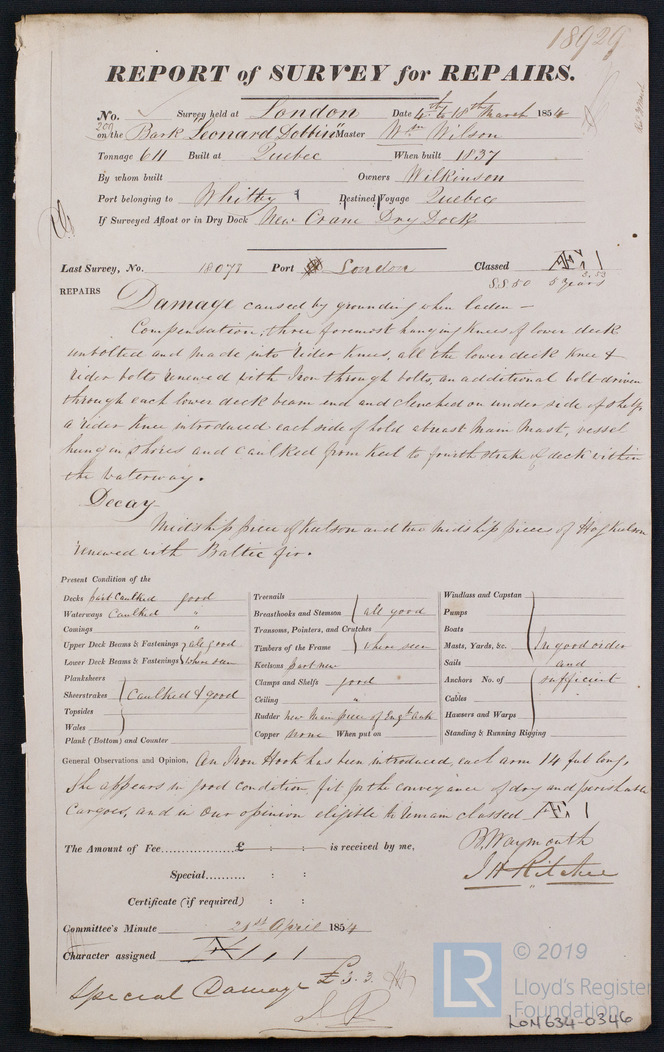 18929
REPORT of SURVEY for REPAIRS.
No. Survey held at London Date 4th to 18th March 1854
200
on the Bark Leonard Dobbin Master Wm Wilson
Tonnage 611 Built at Quebec When built 1837
By whom built Owners Wilkinson
Port belonging to Whitby Destined Voyage Quebec
If Surveyed Afloat or in Dry Dock New Crane Dry Dock
Last Survey, No. 18073 Port London Classed Æ 1
S.S 50 5 years 5,53
REPAIRS Damage caused by grounding when laden —
Compensation; three foremost hanging knees of lower deck
unbolted and made into rider knees, all the lower deck knee &
rider bolts renewed with Iron through bolts, an additional bolt driven
through each lower deck beam end and clenched on under side of shelf,
a rider knee introduced each side of hold abreast Main Mast, vessel
hung in shores and caulked from keel to fourth strake of deck within
the waterway.
Decay
Midship piece of keelson and two midship pieces of Hog keelson
renewed with Baltic fir.
Present Condition of the
Decks part Caulked good
Waterways Caulked "
Comings "
Upper Deck Beams & Fastenings all good
Lower Deck Beams & Fastenings where seen
Planksheers
Sheerstrakes Caulked & good
Topsides
Wales
Plank (Bottom) and Counter
Treenails
Breasthooks and Stemson all good
Transoms, Pointers, and Crutches
Timbers of the Frame where seen
Keelsons part new
Clamps and Shelfs good
Ceiling "
Rudder new Main piece of Engh oak
Copper none When put on
Windlass and Capstan
Pumps
Boats
Masts, Yards, &c. In good order
Sails and
Anchors No. of sufficient
Cables
Hawsers and Warps
Standing & Running Rigging
General Observations and Opinion, An Iron Hook has been introduced, each arm 14 feet long.
She appears in good condition, fit for the conveyance of dry and perishable
Cargoes, and in Our opinion eligible to remain classed Æ 1
The Amount of Fee £ : : is received by me, B. Waymouth
Special : : J H Ritchie
Certificate (if required) : :
Committee's Minute 21st April 1854
Character assigned Æ 1
Special Damage £3.3.
LR
© 2019
Lloyd's Register
Foundation
LON634-0346